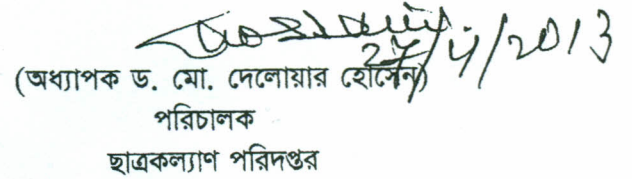 27/4/2013
(অধ্যাপক ড. মো. দেলোয়ার হোসেন)
পরিচালক
ছাত্রকল্যাণ পরিদপ্তর